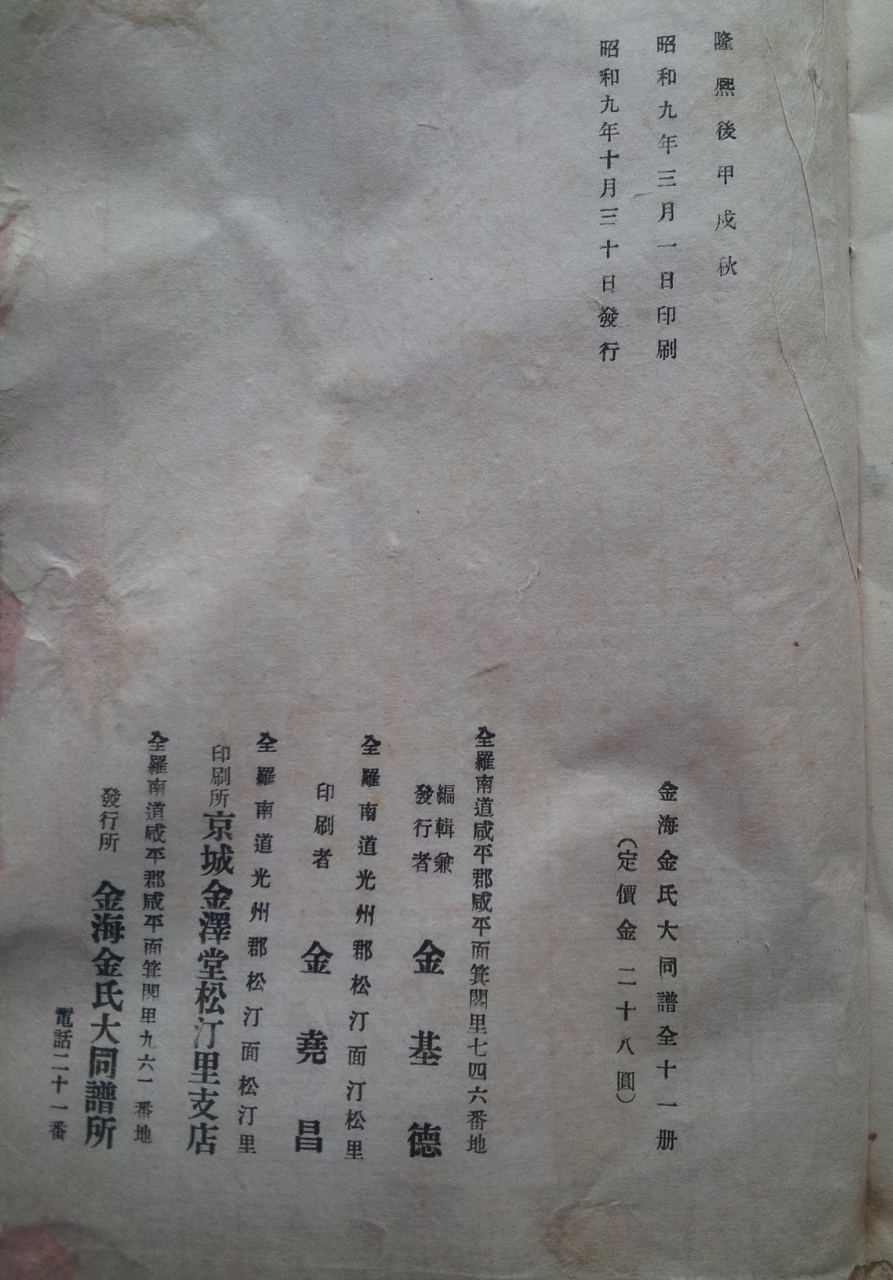 隆熙後甲戌秋
昭和九年三月一日印刷
昭和九年十月三十日發行
金海金氏大同譜全十一册
(定價金 二十八圓)
全羅南道咸平郡咸平面箕閣里七四六番地
編輯兼
發行者 金基德
全羅南道光州郡松汀面汀松里
印刷者 金堯昌
全羅南道光州郡松汀面松汀里
印刷所 京城金澤堂松汀里支店
全羅南道咸平郡咸平面箕閣里九六一番地
發行所 金海金氏大同譜所
電話二十一番